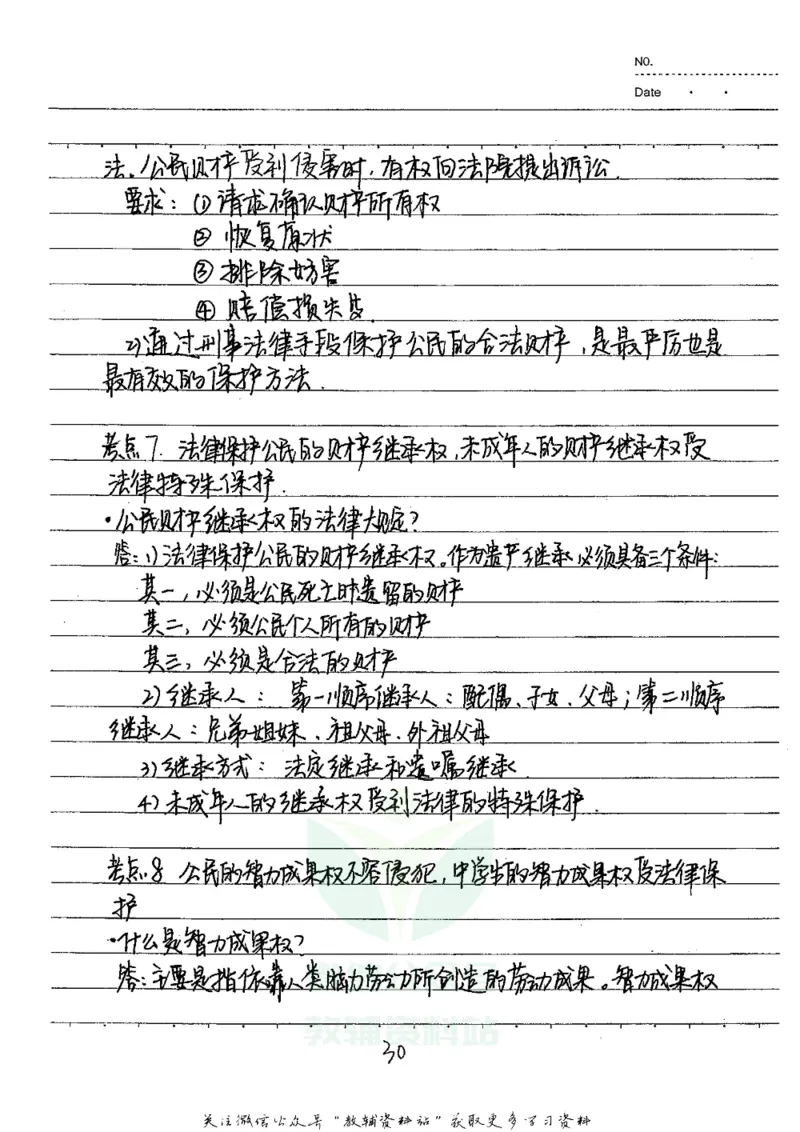 NO.
Date
法。公民财产受到侵害时，有权向法院提出诉讼.
要求：①请求确认财产所有权
②恢复原状
③排除妨害
④赔偿损失
2)通过刑事法律手段保护公民的合法财产，是最严厉也是
最有效的保护方法.
考点7. 法律保护公民的财产继承权，未成年人的财产继承权受
法律特殊保护.
·公民财产继承权的法律规定？
答：1)法律保护公民的财产继承权。作为遗产继承必须具备三个条件：
其一，必须是公民死亡时遗留的财产
其二，必须公民个人所有的财产
其三，必须是合法的财产
2)继承人：第一顺序继承人：配偶、子女、父母；第二顺序
继承人：兄弟姐妹、祖父母、外祖父母
3)继承方式：法定继承和遗嘱继承.
4)未成年人的继承权受到法律的特殊保护.
考点8 公民的智力成果权不容侵犯，中学生的智力成果权受法律保
护
·什么是智力成果权？
答：主要是指依靠人类脑力劳动所创造的劳动成果。智力成果权
教辅资料站
30
关注微信公众号"教辅资料站"获取更多学习资料